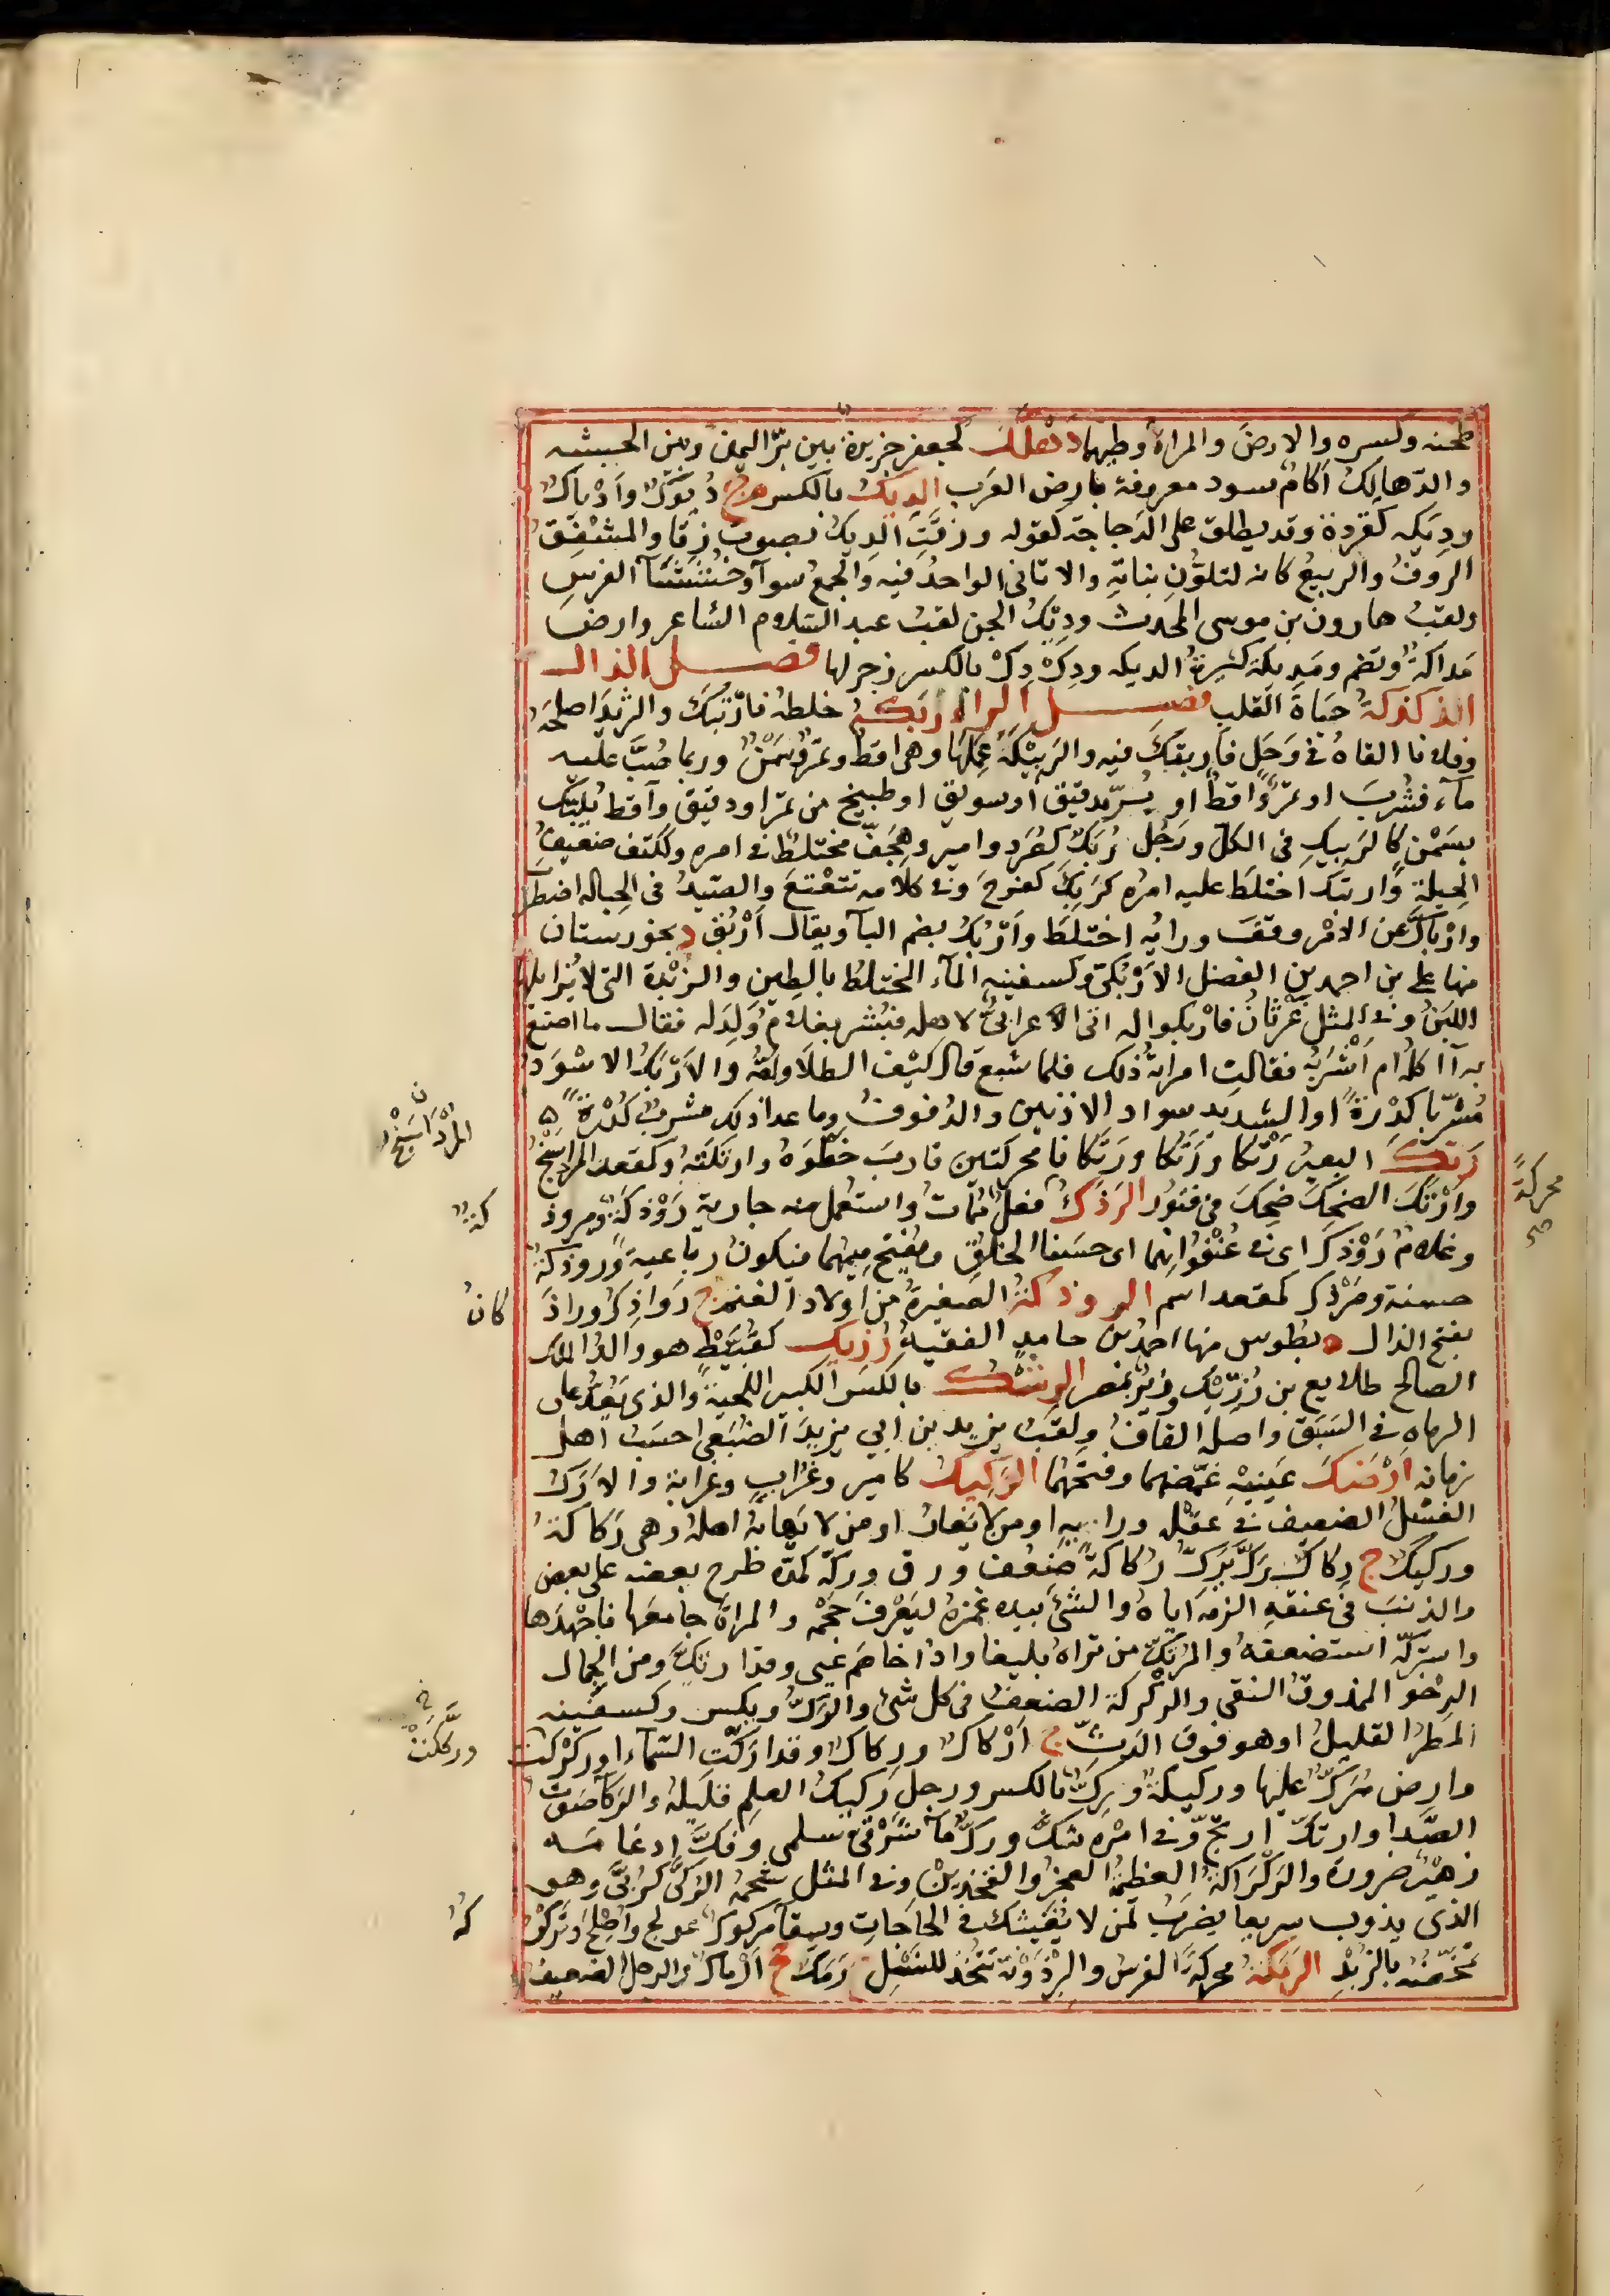 طحنه وكسره والارضَ والمراةَ وطيها دَهْلَك كجعفر جزيرة بين برّ اليمن وبين الحبيشه
والدّهالِكُ اكامٌ سود معروفة بارض العَرَب الديك بالكسر ج دُيُوكٌ وأدْياكٌ
ودِيَكه كقِرَدة وقد يطلق على الدَجاجة كقوله وزقَّتِ الديكُ بصوت زقا والمشفق
الرَوف والربيعُ كانه لتلوُّنِ نباتِهِ والاثافى الواحدُ فيه والجمعُ سوآ وخُشَشَآ الفرس
ولقبُ هارون بن موسى المحدث وديك الجن لقب عبد السلام الشاعر وارض
مَداكَة وتضم ومَديكة كثيرةُ الديكه ودِكْ دِكْ بالكسر زجر لها فصل الذال
الذكذكة حياةَ القلب فصل الراء رَبَكه خلطه فارْتَبَك والثريدَ اصلحه
وفلانا القاهُ فى وَحَلٍ فارتبَك فيه والرَبيْكةَ عَمِلَها وهى اقط وتمرٌ وسَمْنٌ وربما صُبَّ عليه
مآء فشُرِبَ او تمرٌ واقطٌ او رُبٌّ بدقيق او سويق او طبيخ من تمر او دقيق واقط يُلْبَك
بسَمْنٍ كالرَبيكِ فى الكل ورَجُلٌ رُبَكٌ كصُرَد وامير وهِجَفّ مختلط فى امره وككتف ضعيفُ
الحِيلة وارتبك اختلط عليه امره كرَبِكَ كفرِحَ وفى كلامه تتعْتعَ والصَيدُ فى الحباله اضطرب
وارْباكَّ عن الامْر وقفَ ورايُه اختلط وأرْبُك بضم البآ ويقال أرْبُق د بخوزستان
منها على بن احمد بن الفضل الارْبُكىّ وكسفينه المآء المختلط بالطين والزُبْدة التى لا يُزايلها
اللبَنُ وفى المثل غرْثانُ فارْبكوا له اتى اعرابىٌّ لاهله فبُشر بغلام وُلِدَ له فقال ما اصنع
به آاكله ام اشْرَبُه فقالت امراتُه ذلك فلما شبع قال كيف الطَلا وامُّه والارْبَكُ الاسْوَد
مُشْرَبا كدْرةً او الشديد سواد الاذنين والدفوف وما عدا ذلك مشربٌ كُدْرةً
رَتَك البعير رَتْكا ورَتَكا ورَتَكانا محركتين قاربَ خطْوَهُ وارتكتُه وكمقعد المرداسَنْجُ
وارْتَك الضحِكَ ضحِكَ فى فتور الرَذَك فعلٌ مُمات واستعمل منه جارية رَوْذكة ومرودكة
وغلامٌ رَوْذك اى فى عُنْفُوانِهما اى حسَنا الخلق ويُفتح ميمهما فيكون رباعية وروذكة
حسنة ومَرْذَك كمقعد اسم الروذكة الصغيرةُ من اولاد الغنم ج رَواذِكُ وراذكانُ
بفتح الذال ة بطوس منها احمد بن حامد الفقيهُ رُزيك كقُبَّيطٍ هو والدُ الملك
الصالح طلايع بن رُزِّيْك وزيرُ مصر الرشْك بالكسر الكبير اللحية والذى يَعُدُّ على
الرماه فى السَبَق واصله القاف ولقب يزيد بن ابى يزيدَ الضُبَعى احسَبُ اهل
زمانه أرْضَكَ عَينيْهِ غمّضهما وفتحهما الرَكيك كامير وغُرابٍ وغُرابة والارَكّ
الفَسْلُ الضعيف فى عقله ورايه او من لا يَغار او من لا يَهابُه اهله وهى رَكاكة
وركيك ج رِكاك رَكَّ يَرِكُّ رَكاكة ضعُف ورق ورَكّه كمدّه طرح بعضه على بعض
والذنبَ فى عنقه الزمه اياهُ والشئ بيده غمزه ليَعْرِفَ حَجْمه والمراةَ جامعها فاجهَدَها
واستركّه استضعفه والمُرتكّ من تراهُ بليغا واذا خاصَم عَيى وقد ارتكَّ ومن الجمال
الرِخْو الممذوق النقى والركركة الضعف فى كل شئ والرَكُّ ويكسر وكسفينه
المَطَر القليلُ او هو فوق الدَثّ ج ارْكاك ورِكاكٌ وقد اركّت السَمآء اوركّكَت
وارض مُرَكٌّ عليها وركيكة ورِكٌّ بالكسر ورجل ركيك العلم قليله والرَكآ صوت
الصَدا وارتكّ ارتجّ وفى امْرِه شكّ ورَكٌّ مآء شرْقىّ سلمى وفكَّ ادغامَه
زهيْر ضرورة والركْراكة العظيمة العجز والفخذين وفى المثل شحمة الرُكَّى كرُبَّى وهو
الذى يذوب سريعا يضربُ لمن لا يُعينُك فى الحاجات وسِقآ مركوك عولج واصلح وتركْركه
تَخضُّه بالزبد الرمكة محركة الفرس والبِرْذَوْنة تتخذ للنسْل ج رَمَك جج ارماكٌ والرجل الضعيف
المُرْداسَنْجُ
كة
محركة
صح
كانُ
وركّكَتْ
كه